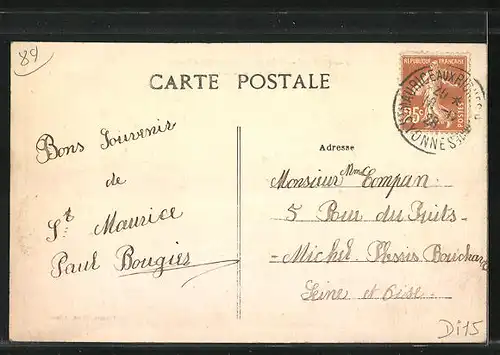 89
CARTE POSTALE
REPUBLIQUE FRANÇAISE
25c
POSTES
YONNE
Adresse
Bons Souvenirs
de
St Maurice
Paul Bougies
Monsieur Mme Compan
5 Rue du Puits-
-Michel. Plessis Bouchard
Seine et Oise.
Di15